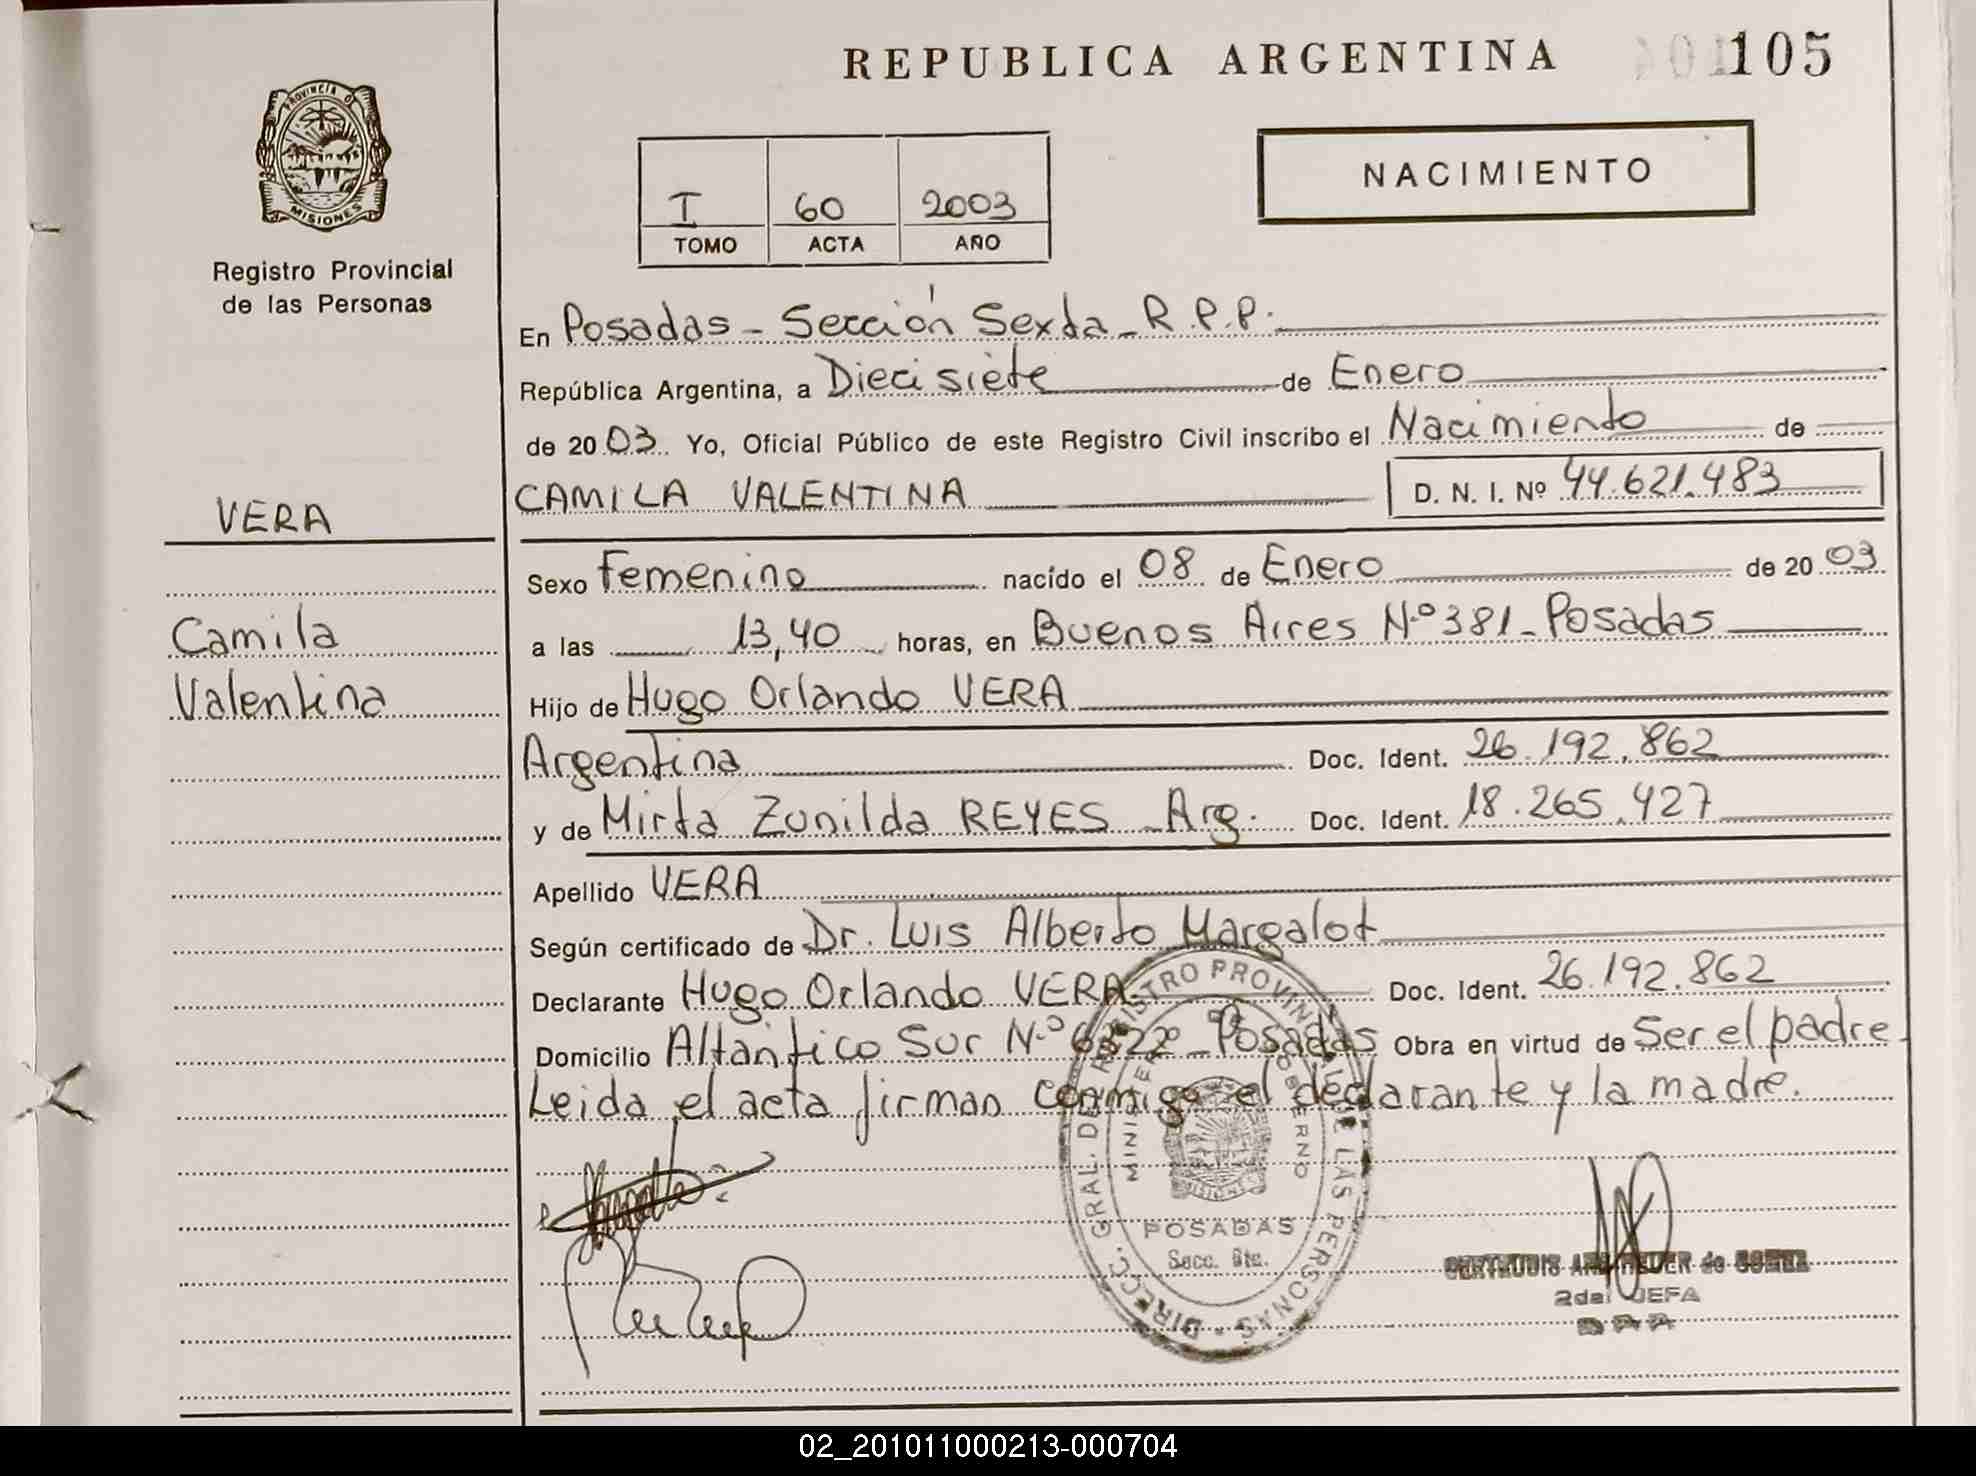 REPUBLICA ARGENTINA
105
PROVINCIA DE
MISIONES
Registro Provincial
de las Personas
I 60 2003
TOMO ACTA AÑO
NACIMIENTO
En Posadas - Sección Sexta - R.P.P.
República Argentina, a Diecisiete de Enero
de 2003. Yo, Oficial Público de este Registro Civil inscribo el Nacimiento de
CAMILA VALENTINA D. N. I. Nº 44.621.483
VERA
Sexo Femenino nacido el 08 de Enero de 2003
a las 13,40 horas, en Buenos Aires Nº 381 - Posadas
Camila
Valentina
Hijo de Hugo Orlando VERA
Argentina Doc. Ident. 26.192.862
y de Mirta Zunilda REYES - Arg. Doc. Ident. 18.265.427
Apellido VERA
Según certificado de Dr. Luis Alberto Margalot
Declarante Hugo Orlando VERA Doc. Ident. 26.192.862
Domicilio Altántico Sur Nº Posadas Obra en virtud de Ser el padre
Leida el acta firman conmigo el declarante y la madre.
DIRECC. GRAL. DEL REGISTRO PROVINCIAL DE LAS PERSONAS
MINISTERIO DE GOBIERNO
MISIONES
POSADAS
Secc. 6ta.
2da. JEFA
02_201011000213-000704